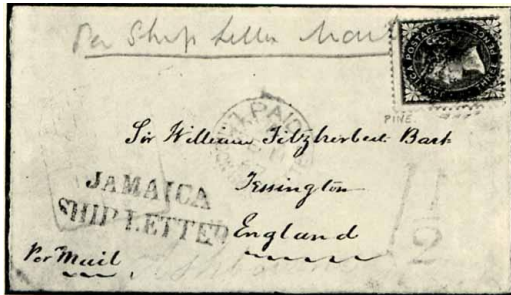 Per Ship Letter Mail
JAMAICA POSTAGE
PINE.
PAID
Sir William Fitzherbert Bart
Tissington
England
JAMAICA
SHIP LETTER
Per Mail
1/2